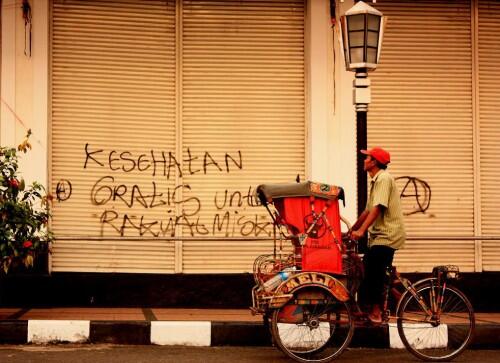 KESEHATAN
GRATIS UNTUK
RAKYAT MISKIN